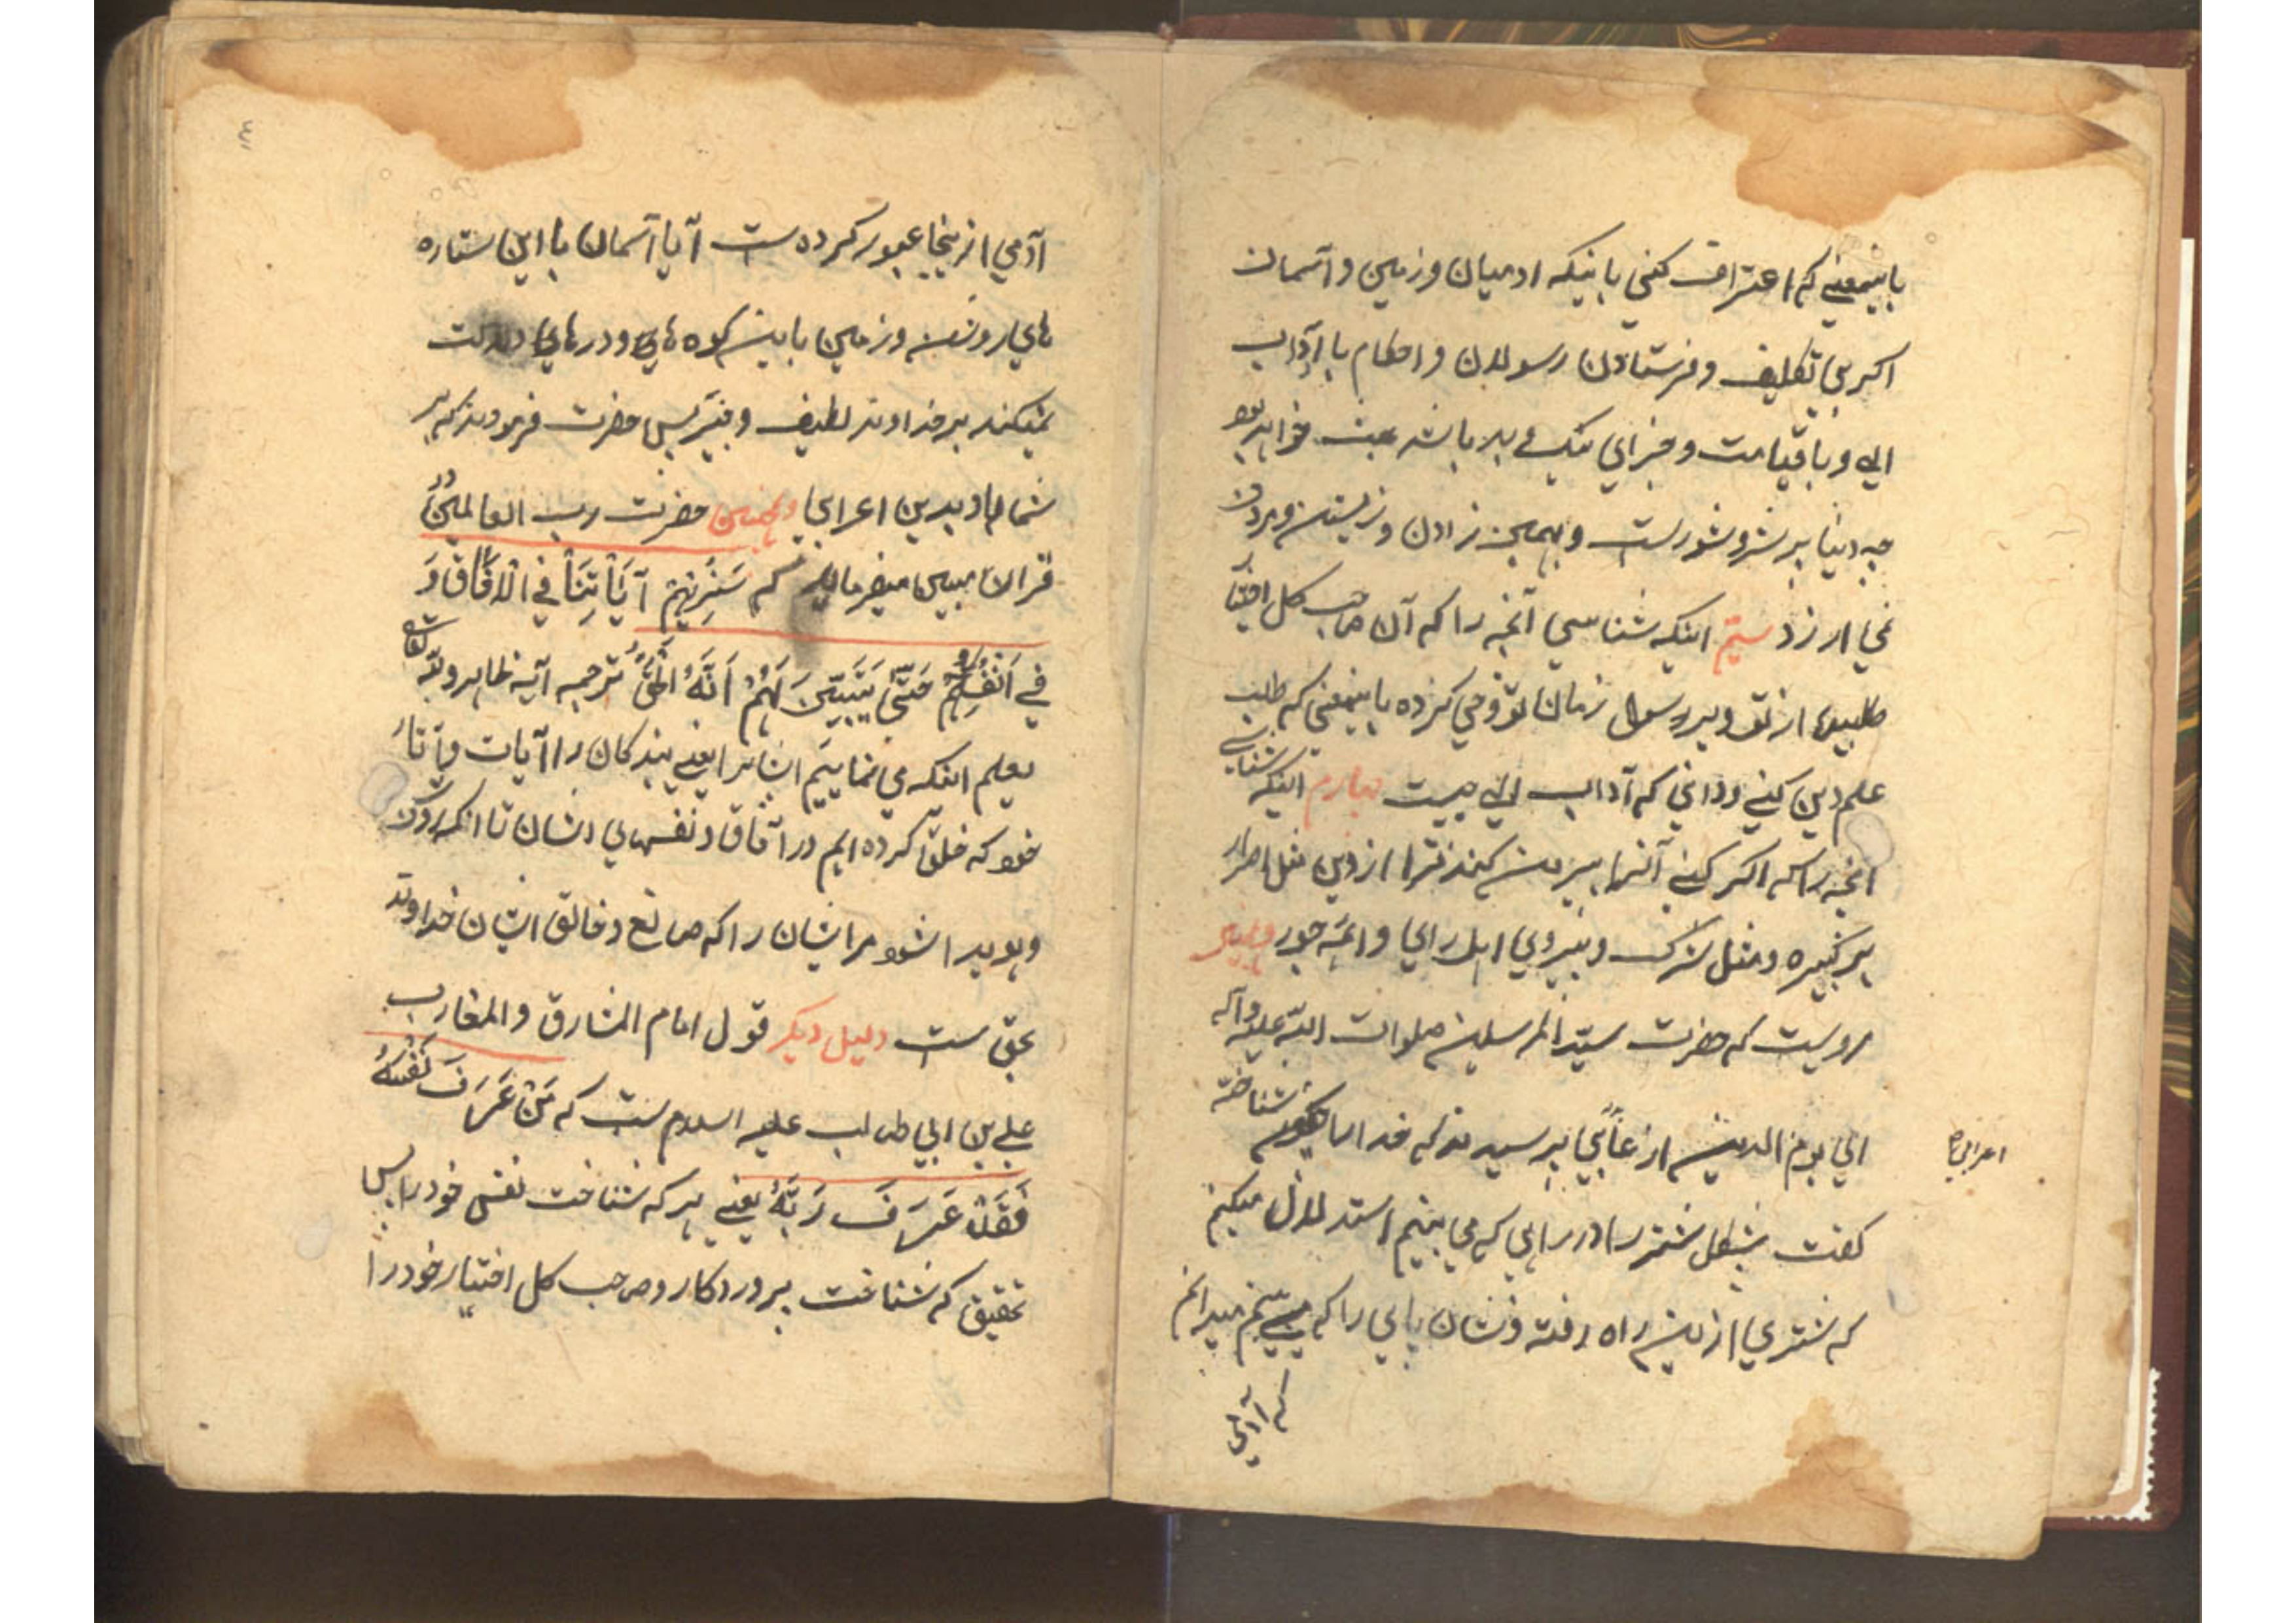 باینمعنی که اعتراف کنی باینکه ادمیان و زمین و آسمان
اکر بی تکلیف و فرستادن رسولان و احکام با آداب
الهی و با قیامت و جزای نیک و بد باشد عبث خواهد بود
چه دنیا پر شر و شورست و بهمین زادن و زیستن و مردن
نمی ارزد سیم اینکه شناسی آنچه را که آن صاحب کل اختیار
طلبیده از تو و بر رسول زمان تو وحی کرده باینمعنی که طلب
علم دین کنی و دانی که آداب الهی چیست چهارم اینکه شناسی
انچه را که اکر کنی آنرا بیرون کند ترا از دین مثل اصرار
بر کبیره و مثل شرک و پیروی اهل رای و ائمه جور
مرویست که حضرت سید المرسلین صلوات الله علیه و آله
الی یوم الدین از عابی پرسیدند که خدا را شناخته
اعرابی
کفت بشکل شتر را در راهی که می بینم استدلال میکنم
که شتری ازین راه رفته و نشان پایی را که می بینم میدانم
که آدمی
آدمی ازینجا عبور کرده است آیا آسمان با این ستاره
های روشن و زمین باین کوه های و درهای دلالت
نمیکند بر خداوند لطیف و خبیر پس حضرت فرمودند که بر
شما باد بدین اعرابی و همچنین حضرت رب العالمین در
قرآن مبین میفرماید که سَنُرِیهِمْ آیَاتِنَا فِی الْآفَاقِ وَ
فِی أَنْفُسِهِمْ حَتَّی یَتَبَیَّنَ لَهُمْ أَنَّهُ الْحَقُّ ترجمه آیه ظاهر و الله
یعلم اینکه می نماییم ایشانرا یعنی بندکان را آیات و آثار
خود که خلق کرده ایم در آفاق و نفسهای ایشان تا انکه روشن
و هویدا شود مر ایشان را که صانع و خالق ایشان خداوند
بحق ست دلیل دیکر قول امام المشارق و المغارب
علی بن ابی طالب علیه السلام ست که مَنْ عَرَفَ نَفْسَهُ
فَقَدْ عَرَفَ رَبَّهُ یعنی هر که شناخت نفس خود را پس
تحقیق که شناخت پروردکار و صاحب کل اختیار خود را